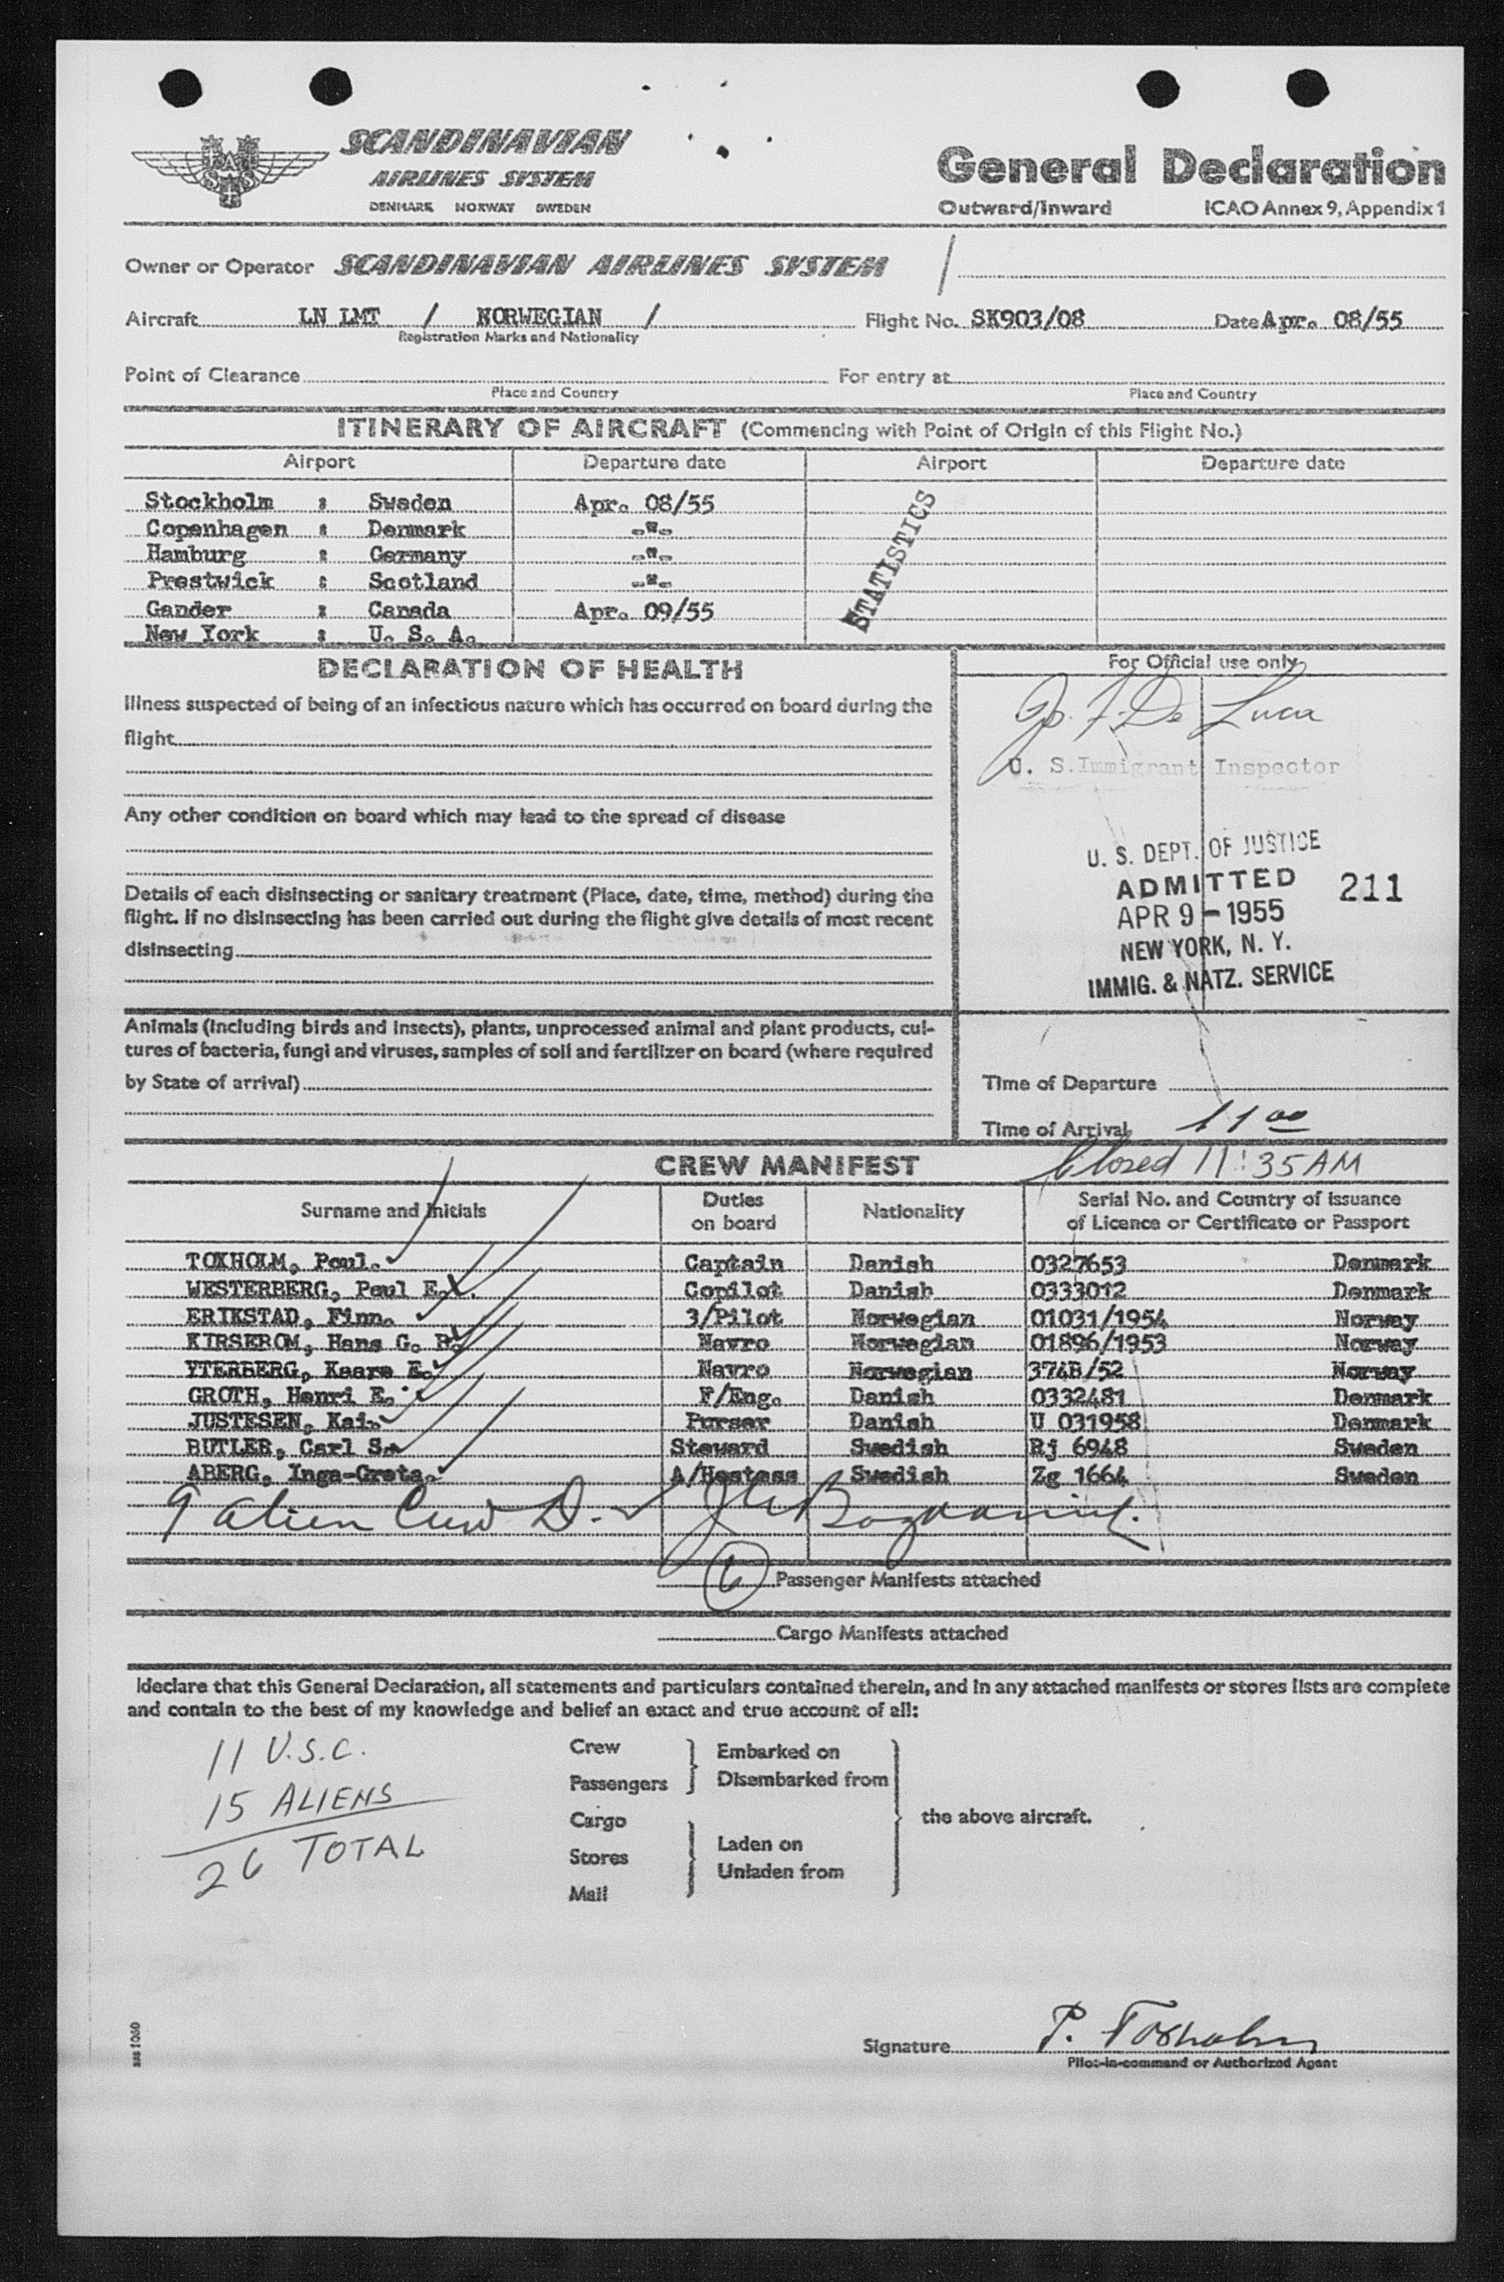 SCANDINAVIAN
AIRLINES SYSTEM
DENMARK NORWAY SWEDEN
General Declaration
Outward/Inward ICAO Annex 9, Appendix 1
Owner or Operator SCANDINAVIAN AIRLINES SYSTEM /
Aircraft LN LMT / NORWEGIAN / Flight No. SK903/08 Date Apr. 08/55
Registration Marks and Nationality
Point of Clearance For entry at
Place and Country Place and Country
ITINERARY OF AIRCRAFT (Commencing with Point of Origin of this Flight No.)
Airport Departure date Airport Departure date
Stockholm : Sweden Apr. 08/55
Copenhagen : Denmark -"-
Hamburg : Germany -"-
Prestwick : Scotland -"-
Gander : Canada Apr. 09/55
New York : U. S. A.
STATISTICS
DECLARATION OF HEALTH
Illness suspected of being of an infectious nature which has occurred on board during the
flight
Any other condition on board which may lead to the spread of disease
Details of each disinsecting or sanitary treatment (Place, date, time, method) during the
flight. If no disinsecting has been carried out during the flight give details of most recent
disinsecting
Animals (including birds and insects), plants, unprocessed animal and plant products, cul-
tures of bacteria, fungi and viruses, samples of soil and fertilizer on board (where required
by State of arrival)
For Official use only
Jo. F. De Luca
U. S. Immigrant Inspector
U. S. DEPT. OF JUSTICE
ADMITTED 211
APR 9 - 1955
NEW YORK, N. Y.
IMMIG. & NATZ. SERVICE
Time of Departure
Time of Arrival 11 00
Closed 11:35 AM
CREW MANIFEST
Surname and Initials Duties on board Nationality Serial No. and Country of Issuance of Licence or Certificate or Passport
TOXHOLM, Poul. Captain Danish 0327653 Denmark
WESTERBERG, Poul E. Copilot Danish 0333012 Denmark
ERIKSTAD, Finn. 3/Pilot Norwegian 01031/1954 Norway
KIRSEROM, Hans G. B. Navro Norwegian 01896/1953 Norway
YTERBERG, Kaare E. Navro Norwegian 374B/52 Norway
GROTH, Henri E. F/Eng. Danish 0332481 Denmark
JUSTESEN, Kai. Purser Danish U 031958 Denmark
BUTLER, Carl S. Steward Swedish Rj 6948 Sweden
ABERG, Inga-Greta. A/Hostess Swedish Zg 1664 Sweden
9 alien Crew D.
6 Passenger Manifests attached
Cargo Manifests attached
I declare that this General Declaration, all statements and particulars contained therein, and in any attached manifests or stores lists are complete
and contain to the best of my knowledge and belief an exact and true account of all:
11 U.S.C.
15 ALIENS
26 TOTAL
Crew
Passengers
Cargo
Stores
Mail
Embarked on
Disembarked from
Laden on
Unladen from
the above aircraft.
sas 1060
Signature P. Toxholm
Pilot-in-command or Authorized Agent